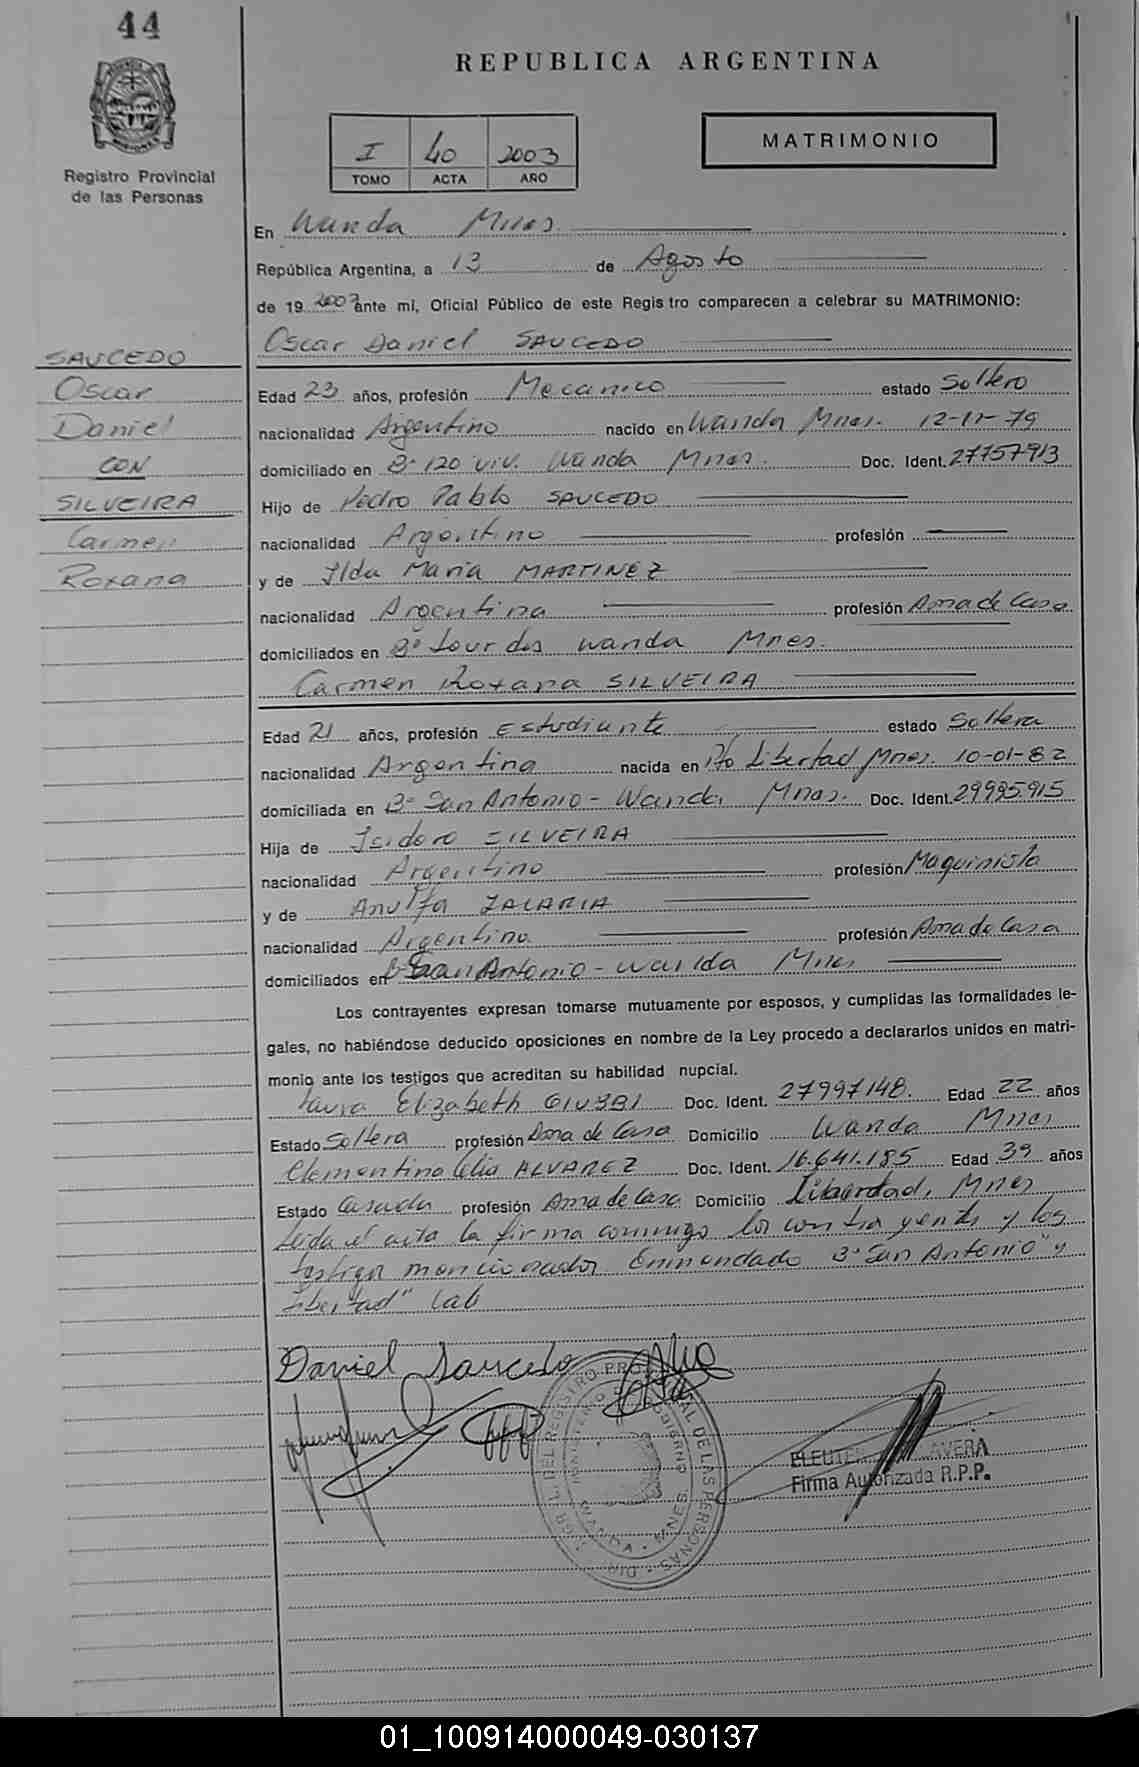 44
REPUBLICA ARGENTINA
MATRIMONIO
I 40 2003
TOMO ACTA AÑO
Registro Provincial
de las Personas
En Wanda Mnes.
República Argentina, a 13 de Agosto
de 19 2003 ante mí, Oficial Público de este Registro comparecen a celebrar su MATRIMONIO:
Oscar Daniel SAUCEDO
SAUCEDO
Oscar
Daniel
CON
SILVEIRA
Carmen
Roxana
Edad 23 años, profesión Mecanico estado Soltero
nacionalidad Argentino nacido en Wanda Mnes. 12-11-79
domiciliado en Bº 120 viv. Wanda Mnes. Doc. Ident. 27757913
Hijo de Pedro Pablo SAUCEDO
nacionalidad Argentino profesión
y de Ilda Maria MARTINEZ
nacionalidad Argentina profesión Ama de Casa
domiciliados en Bº Lourdes Wanda Mnes.
Carmen Roxana SILVEIRA
Edad 21 años, profesión Estudiante estado Soltera
nacionalidad Argentina nacida en Pto Libertad Mnes. 10-01-82
domiciliada en Bº San Antonio - Wanda Mnes. Doc. Ident. 29995915
Hija de Isidoro SILVEIRA
nacionalidad Argentino profesión Maquinista
y de ZACARIA
nacionalidad Argentina profesión Ama de Casa
domiciliados en Bº San Antonio - Wanda Mnes
Los contrayentes expresan tomarse mutuamente por esposos, y cumplidas las formalidades le-
gales, no habiéndose deducido oposiciones en nombre de la Ley procedo a declararlos unidos en matri-
monio ante los testigos que acreditan su habilidad nupcial.
Laura Elizabeth Doc. Ident. 27997148. Edad 22 años
Estado Soltera profesión Ama de Casa Domicilio Wanda Mnes
Clementina Celia ALVAREZ Doc. Ident. 16.641.185 Edad 39 años
Estado Casada profesión Ama de Casa Domicilio Libertad, Mnes
Leida el acta la firma conmigo los contrayentes y los
testigos mencionados. Enmendado Bº San Antonio" y
Libertad"
Daniel Saucedo
DIR. GRAL. DEL REGISTRO PROVINCIAL DE LAS PERSONAS
MINISTERIO DE GOBIERNO
WANDA - MNES.
Firma Autorizada R.P.P.
01_100914000049-030137